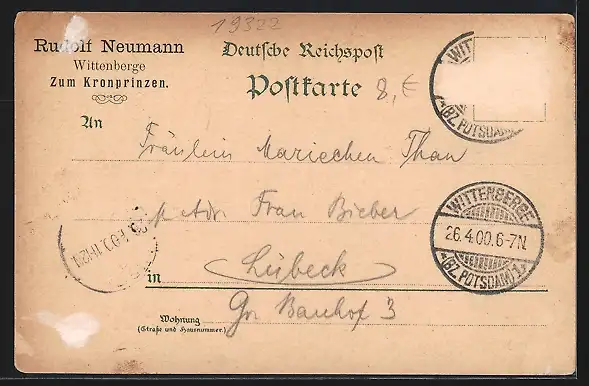 19322
Rudolf Neumann
Wittenberge
Zum Kronprinzen.
Deutsche Reichspost
Postkarte
8,€
WITT
(BZ. POTSDAM)
An
Fräulein Mariechen Than
p. Adr. Frau Bieber
WITTENBERGE
26.4.00.6-7N.
(BZ. POTSDAM) 1
in Lübeck
Gr. Bauhof 3
Wohnung
(Straße und Hausnummer)